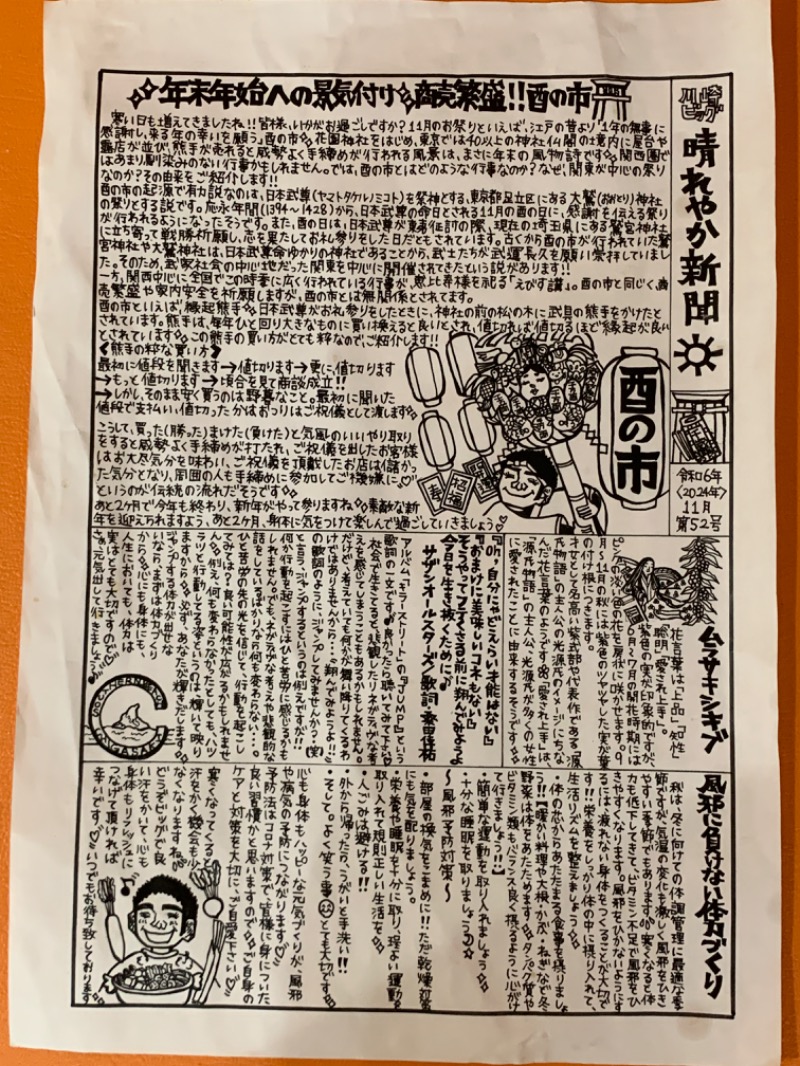 川崎ビッグ
晴れやか新聞
令和6年
〈2024年〉
11月
第52号
年末年始への景気付け 商売繁盛!!酉の市
寒い日も増えてきましたね!!皆様、いかがお過ごしですか?11月のお祭りといえば、江戸の昔より“1年の無事に
感謝し、来る年の幸いを願う”酉の市。花園神社をはじめ、東京では40以上の神社仏閣の境内に屋台や
露店が並び、熊手が売れると威勢よく手締めが行われる風景は、まさに年末の風物詩です。関西圏で
はあまり馴染みのない行事かもしれません。では、酉の市とはどのような行事なのか?なぜ、関東が中心の祭り
なのか?その由来をご紹介します!!
酉の市の起源で有力説なのは、日本武尊(ヤマトタケルノミコト)を祭神とする、東京都足立区にある大鷲(おおとり)神社
の祭りとする説です。応永年間(1394~1428)から、日本武尊の命日とされる11月の酉の日に、感謝を伝える祭り
が行われるようになったそうです。また、酉の日は、日本武尊が東夷征討の際、現在の埼玉県にある鷲宮神社
に立ち寄って戦勝祈願し、志を果たしてお礼参りをした日だともされています。古くから酉の市が行われていた鷲
宮神社や大鷲神社は、日本武尊命ゆかりの神社であることから、武士たちが武運長久を願い崇拝していまし
た。そのため、武家社会の中心地だった関東を中心に開催されてきたという説があります!!
一方、関西中心に全国でこの時季に広く行われている行事が、恵比寿様を祀る「えびす講」。酉の市と同じく、商
売繁盛や家内安全を祈願しますが、酉の市とは無関係とされてます。
酉の市といえば、縁起熊手。日本武尊がお礼参りをしたときに、神社の前の松の木に武具の熊手をかけたと
されています。熊手は、毎年ひと回り大きなものに買い換えると良いとされ、値切れば値切るほど縁起が良い
とされています。この熊手の買い方がとても粋なので、ご紹介します!!
《熊手の粋な買い方》
最初に値段を聞きます→値切ります→更に、値切ります
→もっと値切ります→頃合を見て商談成立!!
→しかし、そのまま安く買うのは野暮なこと。最初に聞いた
値段で支払い、値切った分はおつりはご祝儀として渡します。
こうして、買った(勝った)まけた(負けた)と気風のいいやり取り
をすると威勢よく手締めが打たれ、ご祝儀を出したお客様
はお大尽気分を味わい、ご祝儀を頂戴したお店は儲かっ
た気分となり、周囲の人も手締めに参加してご機嫌に♡
というのが伝統の流れだそうです
あと2ヶ月で今年も終わり、新年がやって参りますね。素敵な新
年を迎えられますよう、あと2ヶ月、身体に気をつけて楽しんで過ごしていきましょう♡
酉の市
寿
招福
ムラサキシキブ
花言葉は「上品」「知性」
「聡明」「愛され上手」。
紫色の実が印象的ですが、
6月~7月の開花時期には
ピンクの淡い色の花を房状に咲かせます。9
月~11月の秋には紫色のツヤツヤした実が葉
の付け根につきます。
才女として名高い紫式部や代表作である「源
氏物語」の主人公の光源氏のイメージにちな
んだ花言葉のようです。「愛され上手」は、
「源氏物語」の主人公、光源氏が多くの女性
に愛されたことに由来するそうです。
『Oh,自分にゃどえらい才能はない』
『おまけに美味しいコネもない』
そうやってフテくさる前に翔んでみようよ
今日を生き抜くために
サザンオールスターズ 歌詞 桑田佳祐
アルバム「キラーストリート」の『JUMP』という
歌詞の一文です。良かったら聴いてみて下さい
社会で生きてると、悲観したりネガティヴな考
えを感じてしまうこともあるかもしれません。
だけど、考えていても何かが舞い降りてくるわ
けではありませんから…“翔んでみようよ!!”
の歌詞のように、ジャンプしてみませんか?(笑)
と言う、ジャンプするというのは例えですが!!
何か行動を起こすにはひと苦労に感じるかも
しれません。でも、ネガティヴな考えや悲観的な
話をしているばかりなら何も変わらない…。
ひと苦労の先の光を信じて、行動を起こし
てみては?良い可能性が広がるかもしれませ
ん。例え、何も変わらなかったとしても、ハツ
ラツと行動してる姿というのは輝いて映り
ますから。必ず、あなたが輝きだします。
ジャンプする体力が出せな
いなら、まずは体力づくり
から。心にも身体にも、
人生においても、体力は
実はとても大切ですので♡
さぁ元気出して行きましょう♪
風邪に負けない体力づくり
秋は、冬に向けての体調管理に最適な季
節ですが、気温の変化も激しく風邪をひき
やすい季節でもあります。寒くなると体
力も低下してきて、ビタミン不足で風邪をひ
きやすくなります。風邪をひかないようにす
るには、疲れない身体をつくることが大切で
す!!栄養をしっかり体の中に摂り入れて、
生活リズムを整えましょう。
・体の芯からあたたまる食事を摂りましょ
う!!【暖かい料理や大根・かぶ・ねぎなど冬
野菜は体をあたためます。タンパク質や
ビタミン類もバランス良く摂るように心がけ
て行きましょう!!】
・簡単な運動を取り入れましょう
・十分な睡眠を取りましょう
~風邪予防対策~
・部屋の換気をこまめに!!ただ乾燥対策
にも気を配りましょう。
・栄養や睡眠を十分に取り、程よい運動を
取り入れて規則正しい生活を
・人ごみは避ける!!
・外から帰ったら、うがいと手洗い!!
・そして。よく笑う事 とても大切です
心も身体も、ハッピーな元気づくりが、風邪
や病気の予防につながります♡
予防法はコロナ対策で、皆様に身についた
良い習慣かと思いますので、ご自身の
ケアと対策を大切に、ご自愛下さい♡
寒くなってくると
汗をかく機会も少
なくなりますね
どうぞビッグで良
い汗をかいて、心も
身体もリフレッシュに
つなげて頂ければ
幸いです♡いつでもお待ち致しております